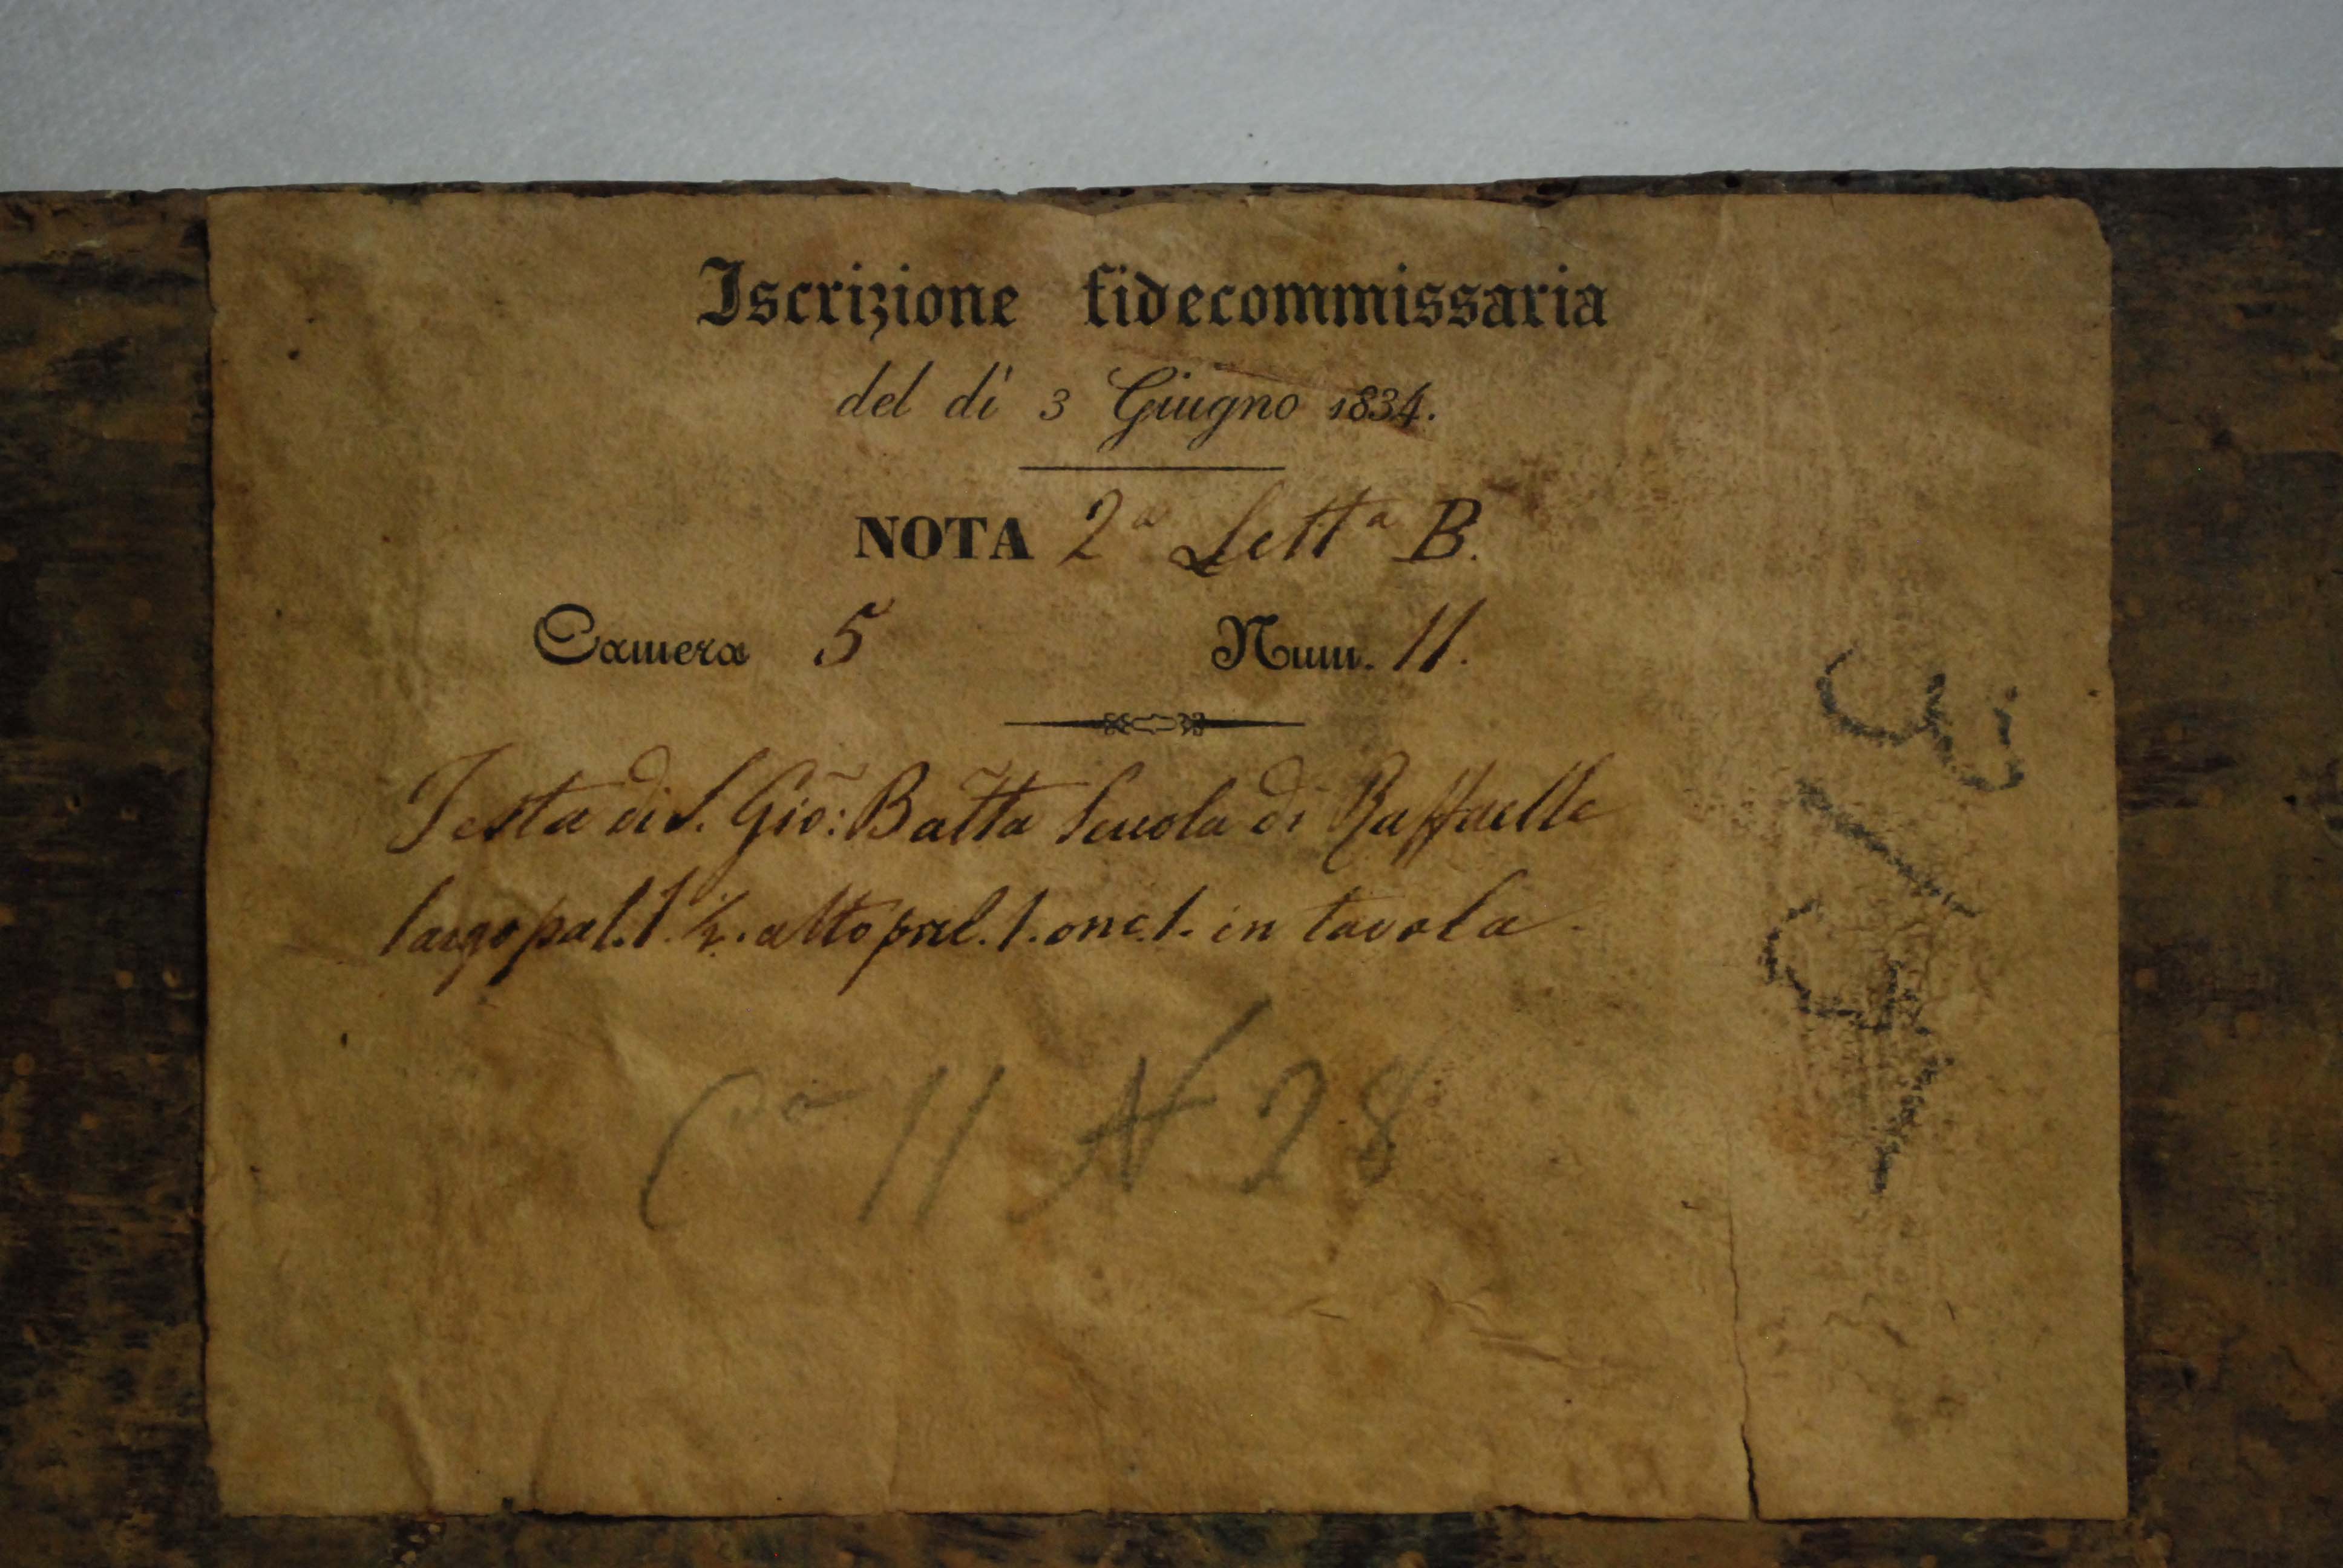 Iscrizione fidecommissaria
del dì 3 Giugno 1834.
NOTA 2ª Lettª B.
Camera 5 Num. 11.
Testa di S. Gio: Batta Scuola di Raffaelle
largo pal. 1. ½. alto pal. 1. onc. 1. in tavola.
Cª 11 N 28